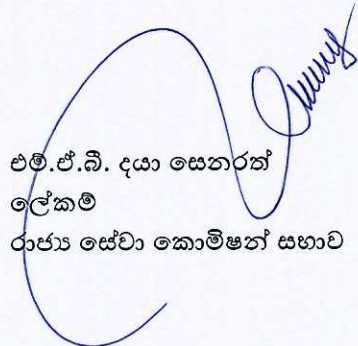 එම්.ඒ.බී. දයා සෙනරත්
ලේකම්
රාජ්‍ය සේවා කොමිෂන් සභාව